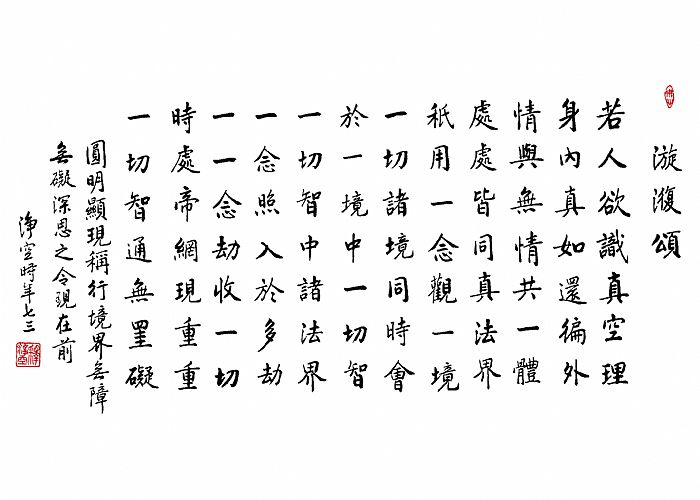 漩澓頌
若人欲識真空理
身內真如還徧外
情與無情共一體
處處皆同真法界
秖用一念觀一境
一切諸境同時會
於一境中一切智
一切智中諸法界
一念照入於多劫
一一念劫收一切
時處帝網現重重
一切智通無罣礙
圓明顯現稱行境界无障
无礙深恩之令現在前
淨空時年七三